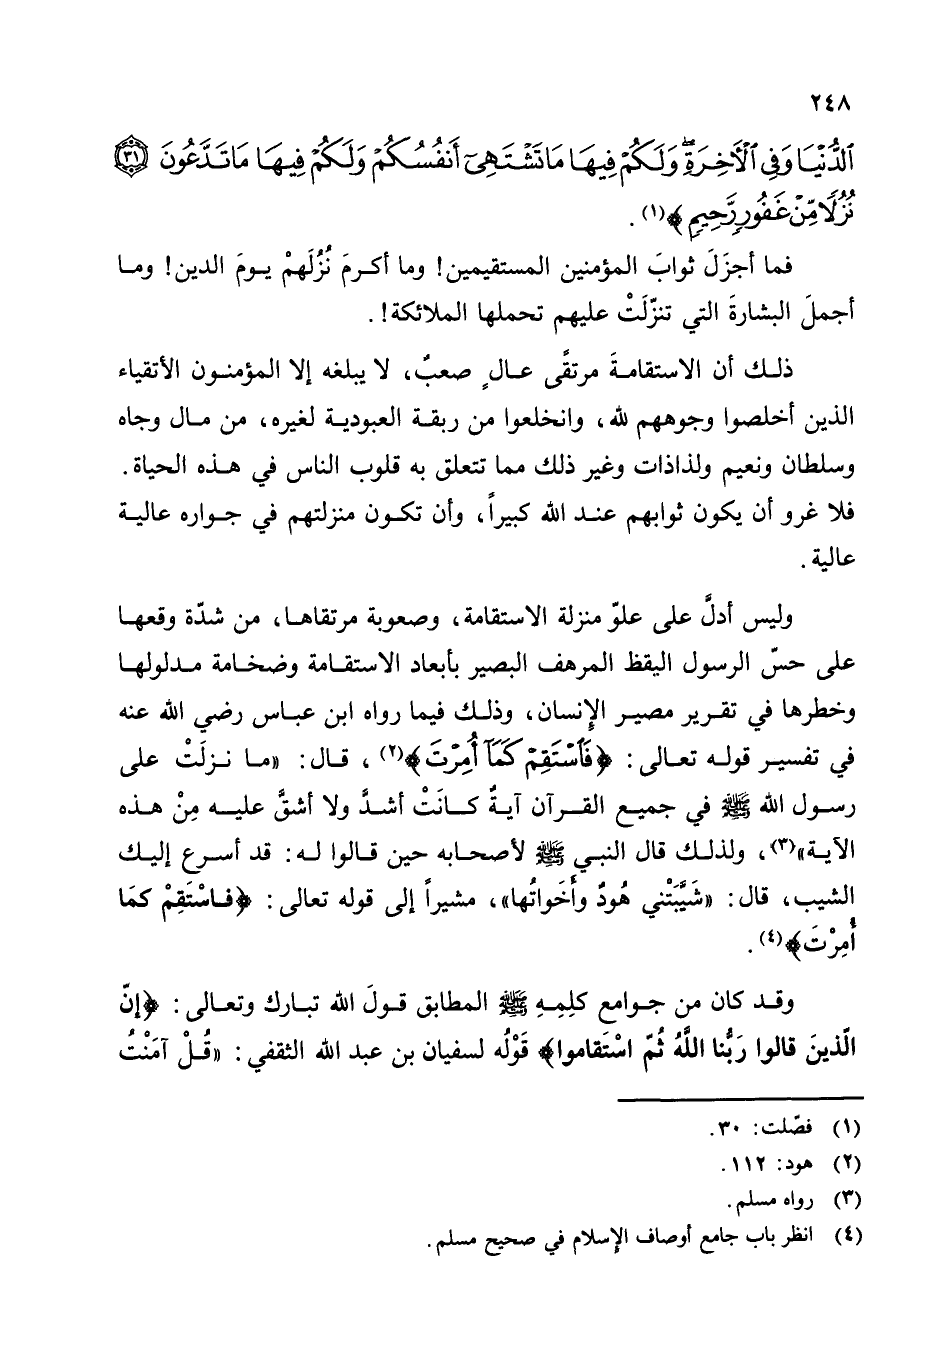 ٢٤٨
ٱلدُّنْيَا وَفِي ٱلْأَخِرَةِ ۖ وَلَكُمْ فِيهَا مَا تَشْتَهِيٓ أَنفُسُكُمْ وَلَكُمْ فِيهَا مَا تَدَّعُونَ ﴿٣١﴾
نُزُلًا مِّنْ غَفُورٍ رَّحِيمٍ ﴾(١) .
فما أجزَلَ ثوابَ المؤمنين المستقيمين! وما أكرمَ نُزُلَهمْ يومَ الدين! وما
أجملَ البشارةَ التي تنزّلَتْ عليهم تحملها الملائكة! .
ذلك أن الاستقامةَ مرتقًى عالٍ صعبٌ، لا يبلغه إلا المؤمنون الأتقياء
الذين أخلصوا وجوههم لله، وانخلعوا من ربقة العبودية لغيره، من مال وجاه
وسلطان ونعيم ولذاذات وغير ذلك مما تتعلق به قلوب الناس في هذه الحياة .
فلا غرو أن يكون ثوابهم عند الله كبيراً، وأن تكون منزلتهم في جواره عالية
عالية .
وليس أدلَّ على علوّ منزلة الاستقامة، وصعوبة مرتقاها، من شدّة وقعها
على حسّ الرسول اليقظ المرهف البصير بأبعاد الاستقامة وضخامة مدلولها
وخطرها في تقرير مصير الإنسان، وذلك فيما رواه ابن عباس رضي الله عنه
في تفسير قوله تعالى : ﴿فَٱسْتَقِمْ كَمَآ أُمِرْتَ﴾(٢) ، قال: «ما نزلَتْ على
رسول الله ﷺ في جميع القرآن آيةٌ كانَتْ أشدَّ ولا أشقَّ عليه مِنْ هذه
الآية»(٣)، ولذلك قال النبي ﷺ لأصحابه حين قالوا له: قد أسرع إليك
الشيب، قال: «شَيَّبَتْني هُودٌ وأَخَواتُها»، مشيراً إلى قوله تعالى: ﴿فاسْتَقِمْ كمَا
أُمِرْتَ﴾(٤) .
وقد كان من جوامع كلِمِهِ ﷺ المطابق قولَ الله تبارك وتعالى: ﴿إنّ
الّذينَ قالوا رَبُّنا اللَّهُ ثُمّ اسْتَقاموا﴾ قَوْلُه لسفيان بن عبد الله الثقفي: «قُلْ آمَنْتُ
(١) فصّلت: ٣٠.
(٢) هود: ١١٢.
(٣) رواه مسلم.
(٤) انظر باب جامع أوصاف الإسلام في صحيح مسلم.